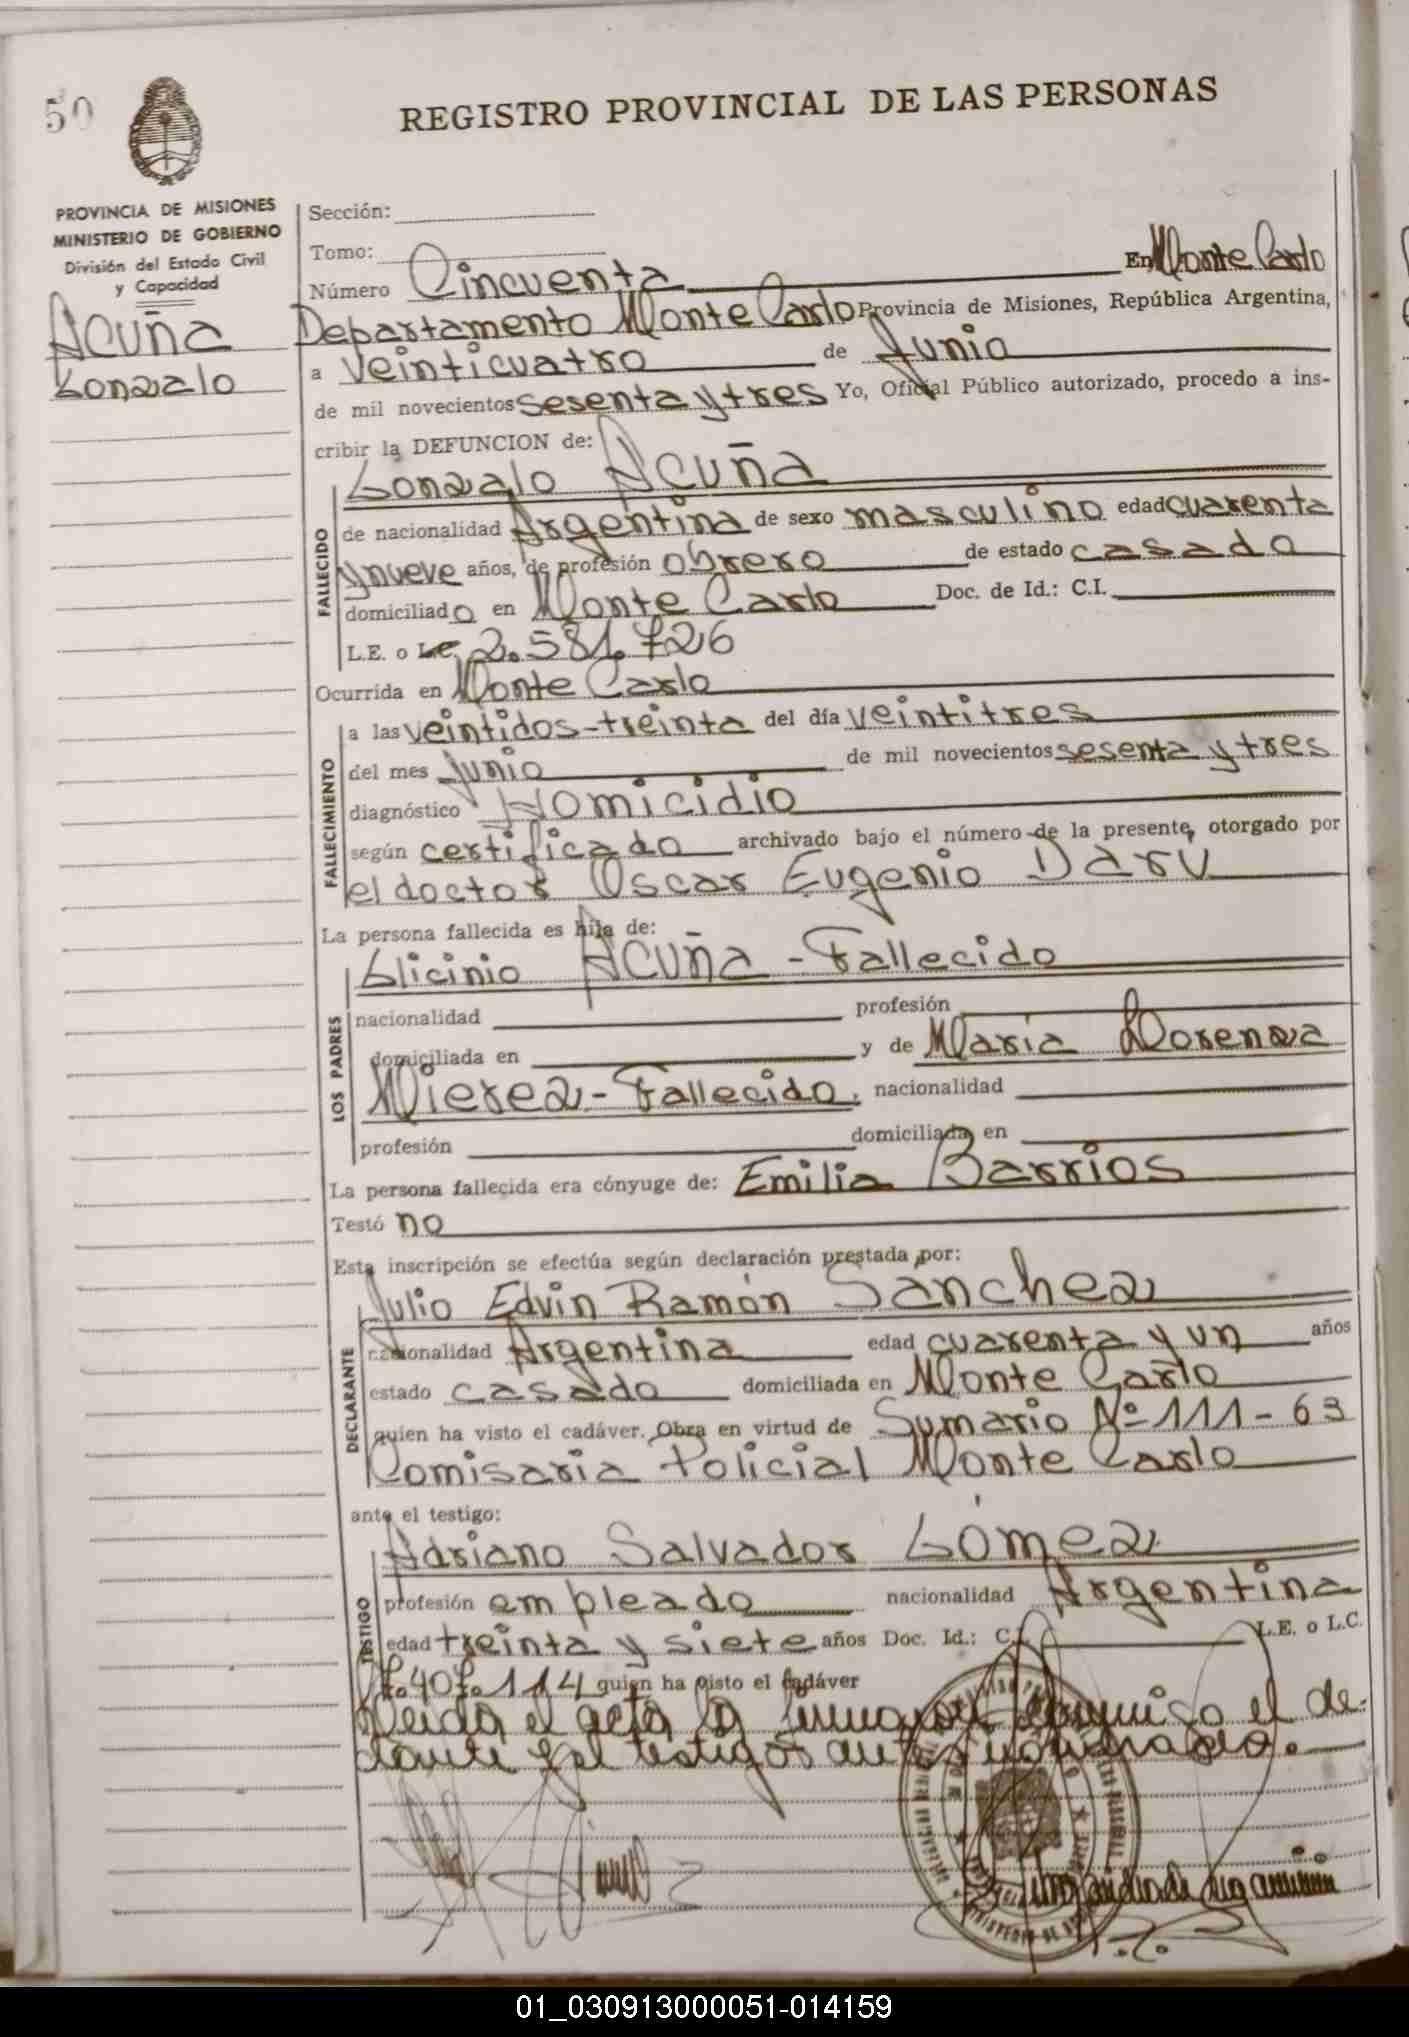 50
REGISTRO PROVINCIAL DE LAS PERSONAS
PROVINCIA DE MISIONES
MINISTERIO DE GOBIERNO
División del Estado Civil
y Capacidad
Acuña
Gonzalo
Sección:
Tomo:
Número Cincuenta En Monte Carlo
Departamento Monte Carlo Provincia de Misiones, República Argentina,
a veinticuatro de Junio
de mil novecientos sesenta y tres Yo, Oficial Público autorizado, procedo a ins-
cribir la DEFUNCION de:
Gonzalo Acuña
FALLECIDO
de nacionalidad Argentina de sexo masculino edad cuarenta
y nueve años, de profesión obrero de estado casado
domiciliado en Monte Carlo Doc. de Id.: C.I.
L.E. o 2.581.726
Ocurrida en Monte Carlo
FALLECIMIENTO
a las veintidos-treinta del día veintitres
del mes Junio de mil novecientos sesenta y tres
diagnóstico Homicidio
según certificado archivado bajo el número de la presente, otorgado por
el doctor Oscar Eugenio Darú
La persona fallecida es hija de:
LOS PADRES
Glicinio Acuña - Fallecido
nacionalidad profesión
domiciliada en y de Maria Lorenza
Mierez - Fallecido, nacionalidad
profesión domiciliada en
La persona fallecida era cónyuge de: Emilia Barrios
Testó no
Esta inscripción se efectúa según declaración prestada por:
DECLARANTE
Julio Edvin Ramón Sanchez
nacionalidad Argentina edad cuarenta y un años
estado casado domiciliada en Monte Carlo
quien ha visto el cadáver. Obra en virtud de Sumario Nº 111-63
Comisaria Policial Monte Carlo
ante el testigo:
TESTIGO
Adriano Salvador Gómez
profesión empleado nacionalidad Argentina
edad treinta y siete años Doc. Id.: C.I. L.E. o L.C.
7.407.114 quien ha visto el cadáver
Leida el acta la el de-
clarante y el testigo
01_030913000051-014159